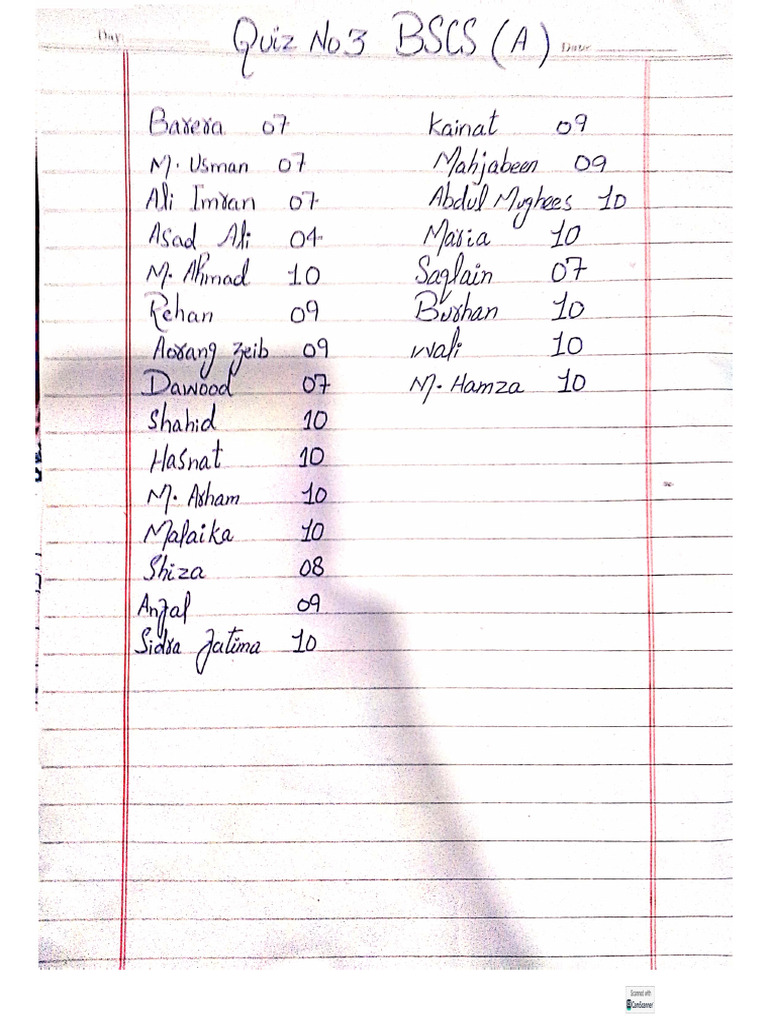 Day
Quiz No 3 BSCS (A)
Date
Barera 07
M. Usman 07
Ali Imran 07
Asad Ali 04
M. Ahmad 10
Rehan 09
Aorang Zeib 09
Dawood 07
Shahid 10
Hasnat 10
M. Arham 10
Malaika 10
Shiza 08
Anfal 09
Sidra Fatima 10
Kainat 09
Mahjabeen 09
Abdul Mughees 10
Maria 10
Saqlain 07
Burhan 10
Wali 10
M. Hamza 10
Scanned with
CamScanner